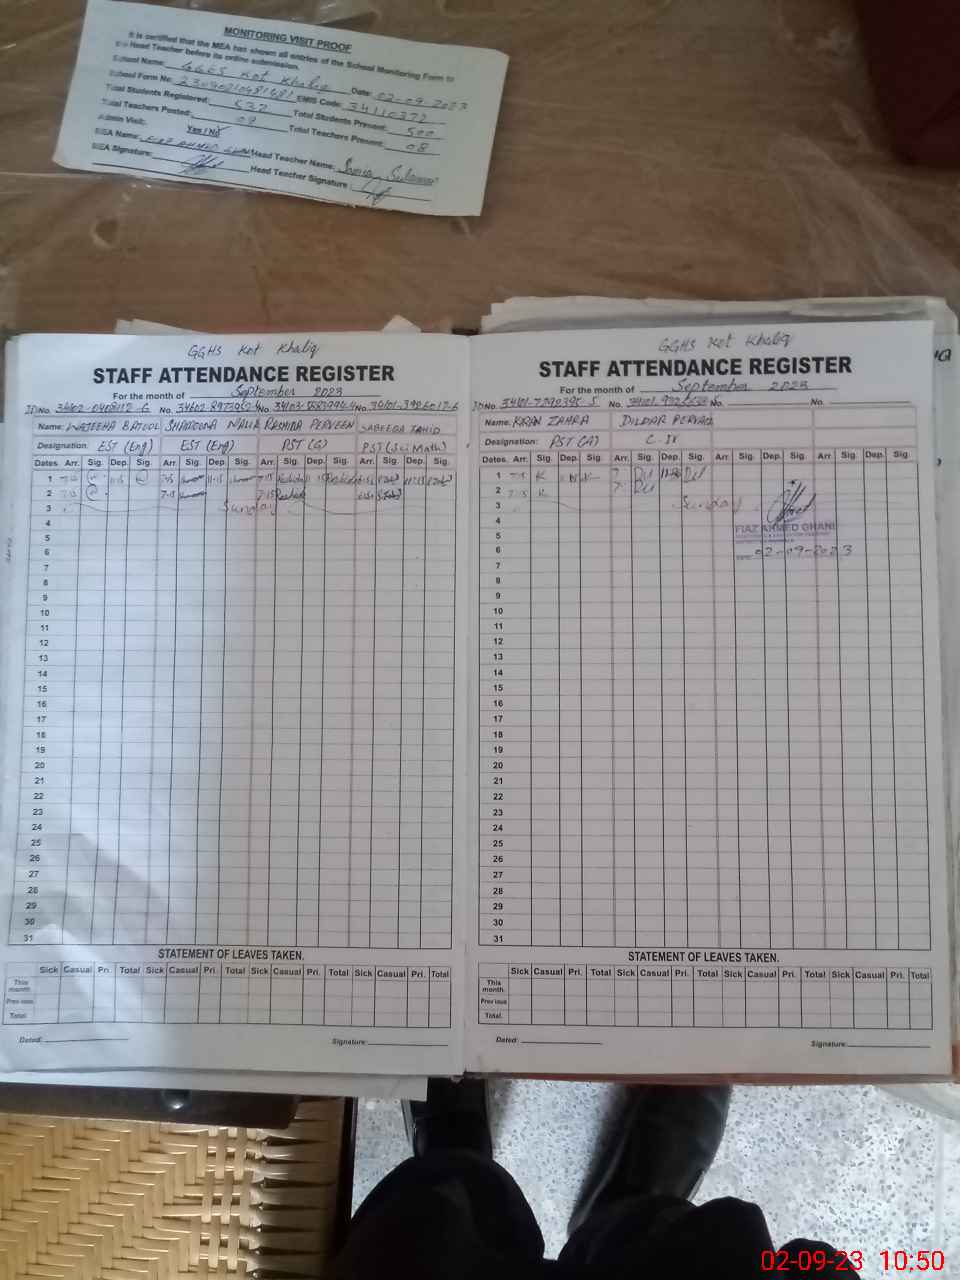 MONITORING VISIT PROOF
It is certified that the MEA has shown all entries of the School Monitoring Form to
the Head Teacher before its online submission.
School Name: GGES Kot Khaliq Date: 02-09-2023
School Form No: EMIS Code: 34110372
Total Students Registered: 532 Total Students Present: 500
Total Teachers Posted: 09 Total Teachers Present: 08
Admin Visit: Yes / No
MEA Name: FIAZ AHMED GHANI Head Teacher Name: Samia
MEA Signature: Head Teacher Signature:
GGHS Kot Khaliq
STAFF ATTENDANCE REGISTER
For the month of September 2023
ID No. No. No. No.
Name: WAJEEHA BATOOL SHAMOONA MALIK RASHIDA PERVEEN SABEEGA ZAHID
Designation: EST (Eng) EST (Eng) PST (G) PST (Sci Math)
Dates Arr. Sig. Dep. Sig. Arr. Sig. Dep. Sig. Arr. Sig. Dep. Sig. Arr. Sig. Dep. Sig.
1 7:15 11:15 7:15 11:15 7:15 Rashida 11:15 Rashida 11:15
2 7:15 7:15 7:15 Rashida
3 Sunday
4
5
6
7
8
9
10
11
12
13
14
15
16
17
18
19
20
21
22
23
24
25
26
27
28
29
30
31
STATEMENT OF LEAVES TAKEN.
Sick Casual Pri. Total Sick Casual Pri. Total Sick Casual Pri. Total Sick Casual Pri. Total
This month.
Previous
Total.
Dated: Signature:
GGHS Kot Khaliq
STAFF ATTENDANCE REGISTER
For the month of September 2023
ID No. 34101-7290395-5 No. No. No.
Name: KIRAN ZAHRA DILDAR PERVAIZ
Designation: PST (A) C-IV
Dates Arr. Sig. Dep. Sig. Arr. Sig. Dep. Sig. Arr. Sig. Dep. Sig. Arr. Sig. Dep. Sig.
1 7:15 K 7 Dil 11:30 Dil
2 7:15 K 7 Dil
3 Sunday
4
FIAZ AHMED GHANI
5
6 02-09-2023
7
8
9
10
11
12
13
14
15
16
17
18
19
20
21
22
23
24
25
26
27
28
29
30
31
STATEMENT OF LEAVES TAKEN.
Sick Casual Pri. Total Sick Casual Pri. Total Sick Casual Pri. Total Sick Casual Pri. Total
This month.
Previous
Total
Dated: Signature:
02-09-23 10.50